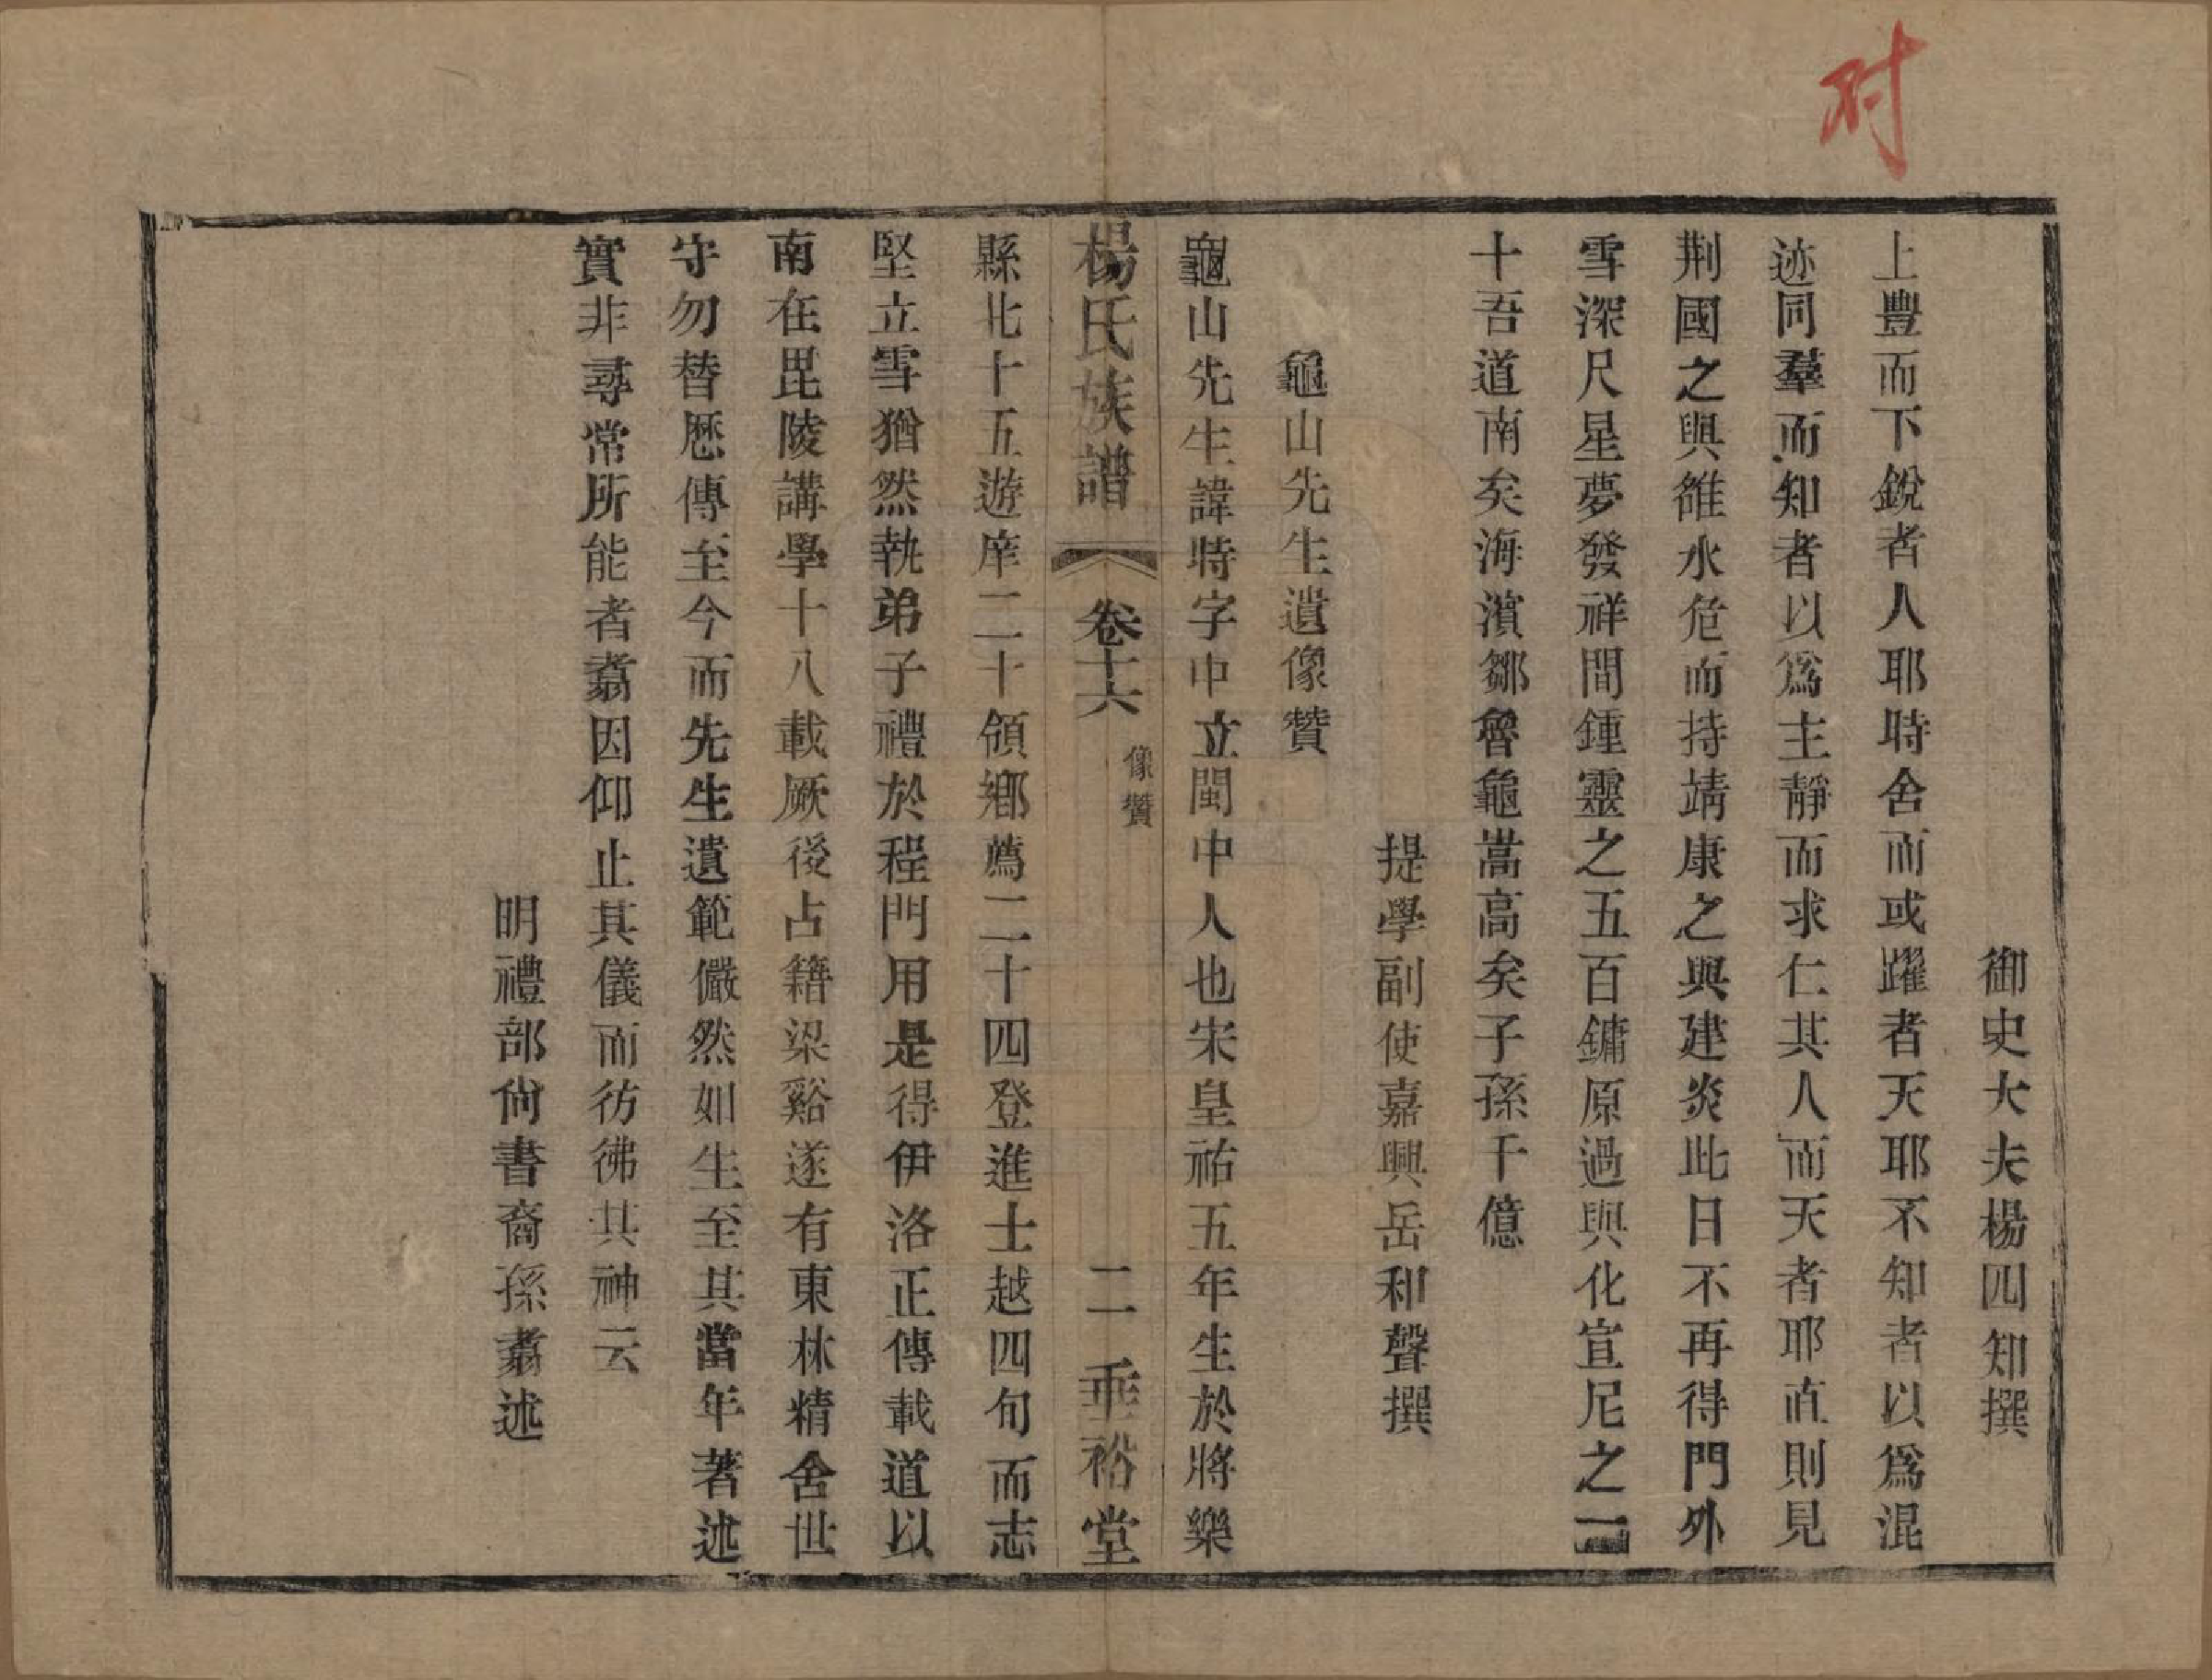 时
御史大夫楊四知撰
上豊而下銳者人耶時舍而或躍者天耶不知者以爲混
迹同羣而知者以爲主靜而求仁其人而天者耶直則見
荆國之與雒水危而持靖康之與建炎此日不再得門外
雪深尺星夢發祥間鍾靈之五百鏞原過與化宣尼之二
十吾道南矣海濵鄒魯龜嵩高矣子孫千億
提學副使嘉興岳和聲撰
龜山先生遺像贊
龜山先生諱時字中立閩中人也宋皇祐五年生於將樂
楊氏族譜 卷十六 像贊 二 垂裕堂
縣北十五遊庠二十領鄉薦二十四登進士越四旬而志
堅立雪猶然執弟子禮於程門用是得伊洛正傳載道以
南在毘陵講學十八載厥後占籍梁谿遂有東林精舍世
守勿替歷傳至今而先生遺範儼然如生至其當年著述
實非尋常所能者翥因仰止其儀而彷彿其神云
明禮部尙書裔孫翥述